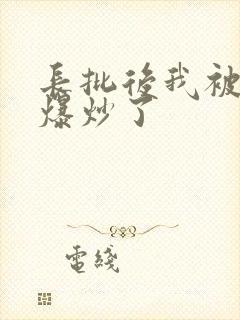 長批後我被
爆炒了
電綫